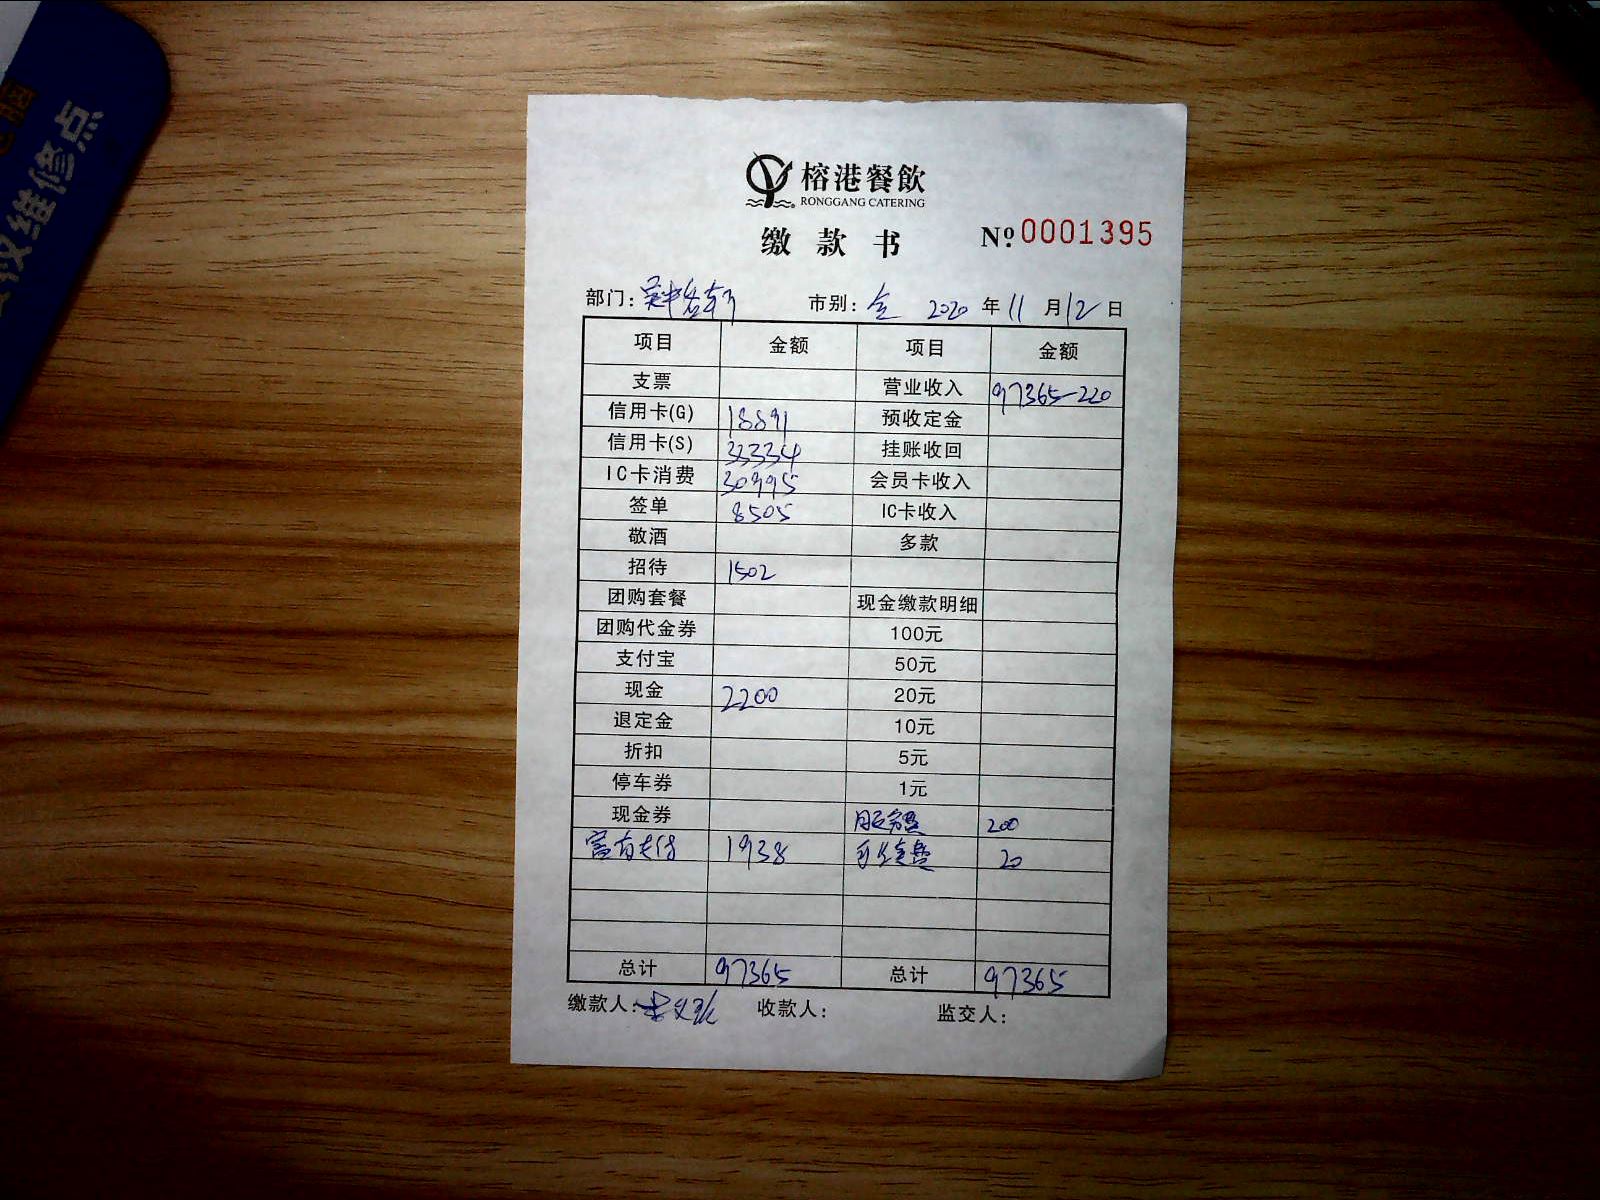 收维修点
榕港餐飲
RONGGANG CATERING
缴款书
№ 0001395
部门: 市别: 全 2020 年 11 月 12 日
项目 金额 项目 金额
支票 营业收入 97365-220
信用卡(G) 18891 预收定金
信用卡(S) 33334 挂账收回
IC卡消费 30995 会员卡收入
签单 8505 IC卡收入
敬酒 多款
招待 1502
团购套餐 现金缴款明细
团购代金券 100元
支付宝 50元
现金 2200 20元
退定金 10元
折扣 5元
停车券 1元
现金券 服务费 200
富有支付 1938 手续费 20
总计 97365 总计 97365
缴款人: 收款人: 监交人: